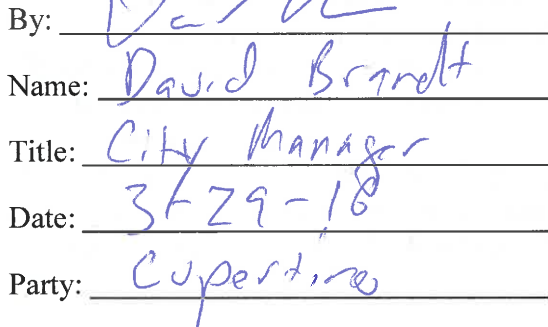 By:
Name: David Brandt
Title: City Manager
Date: 3-29-18
Party: Cupertino